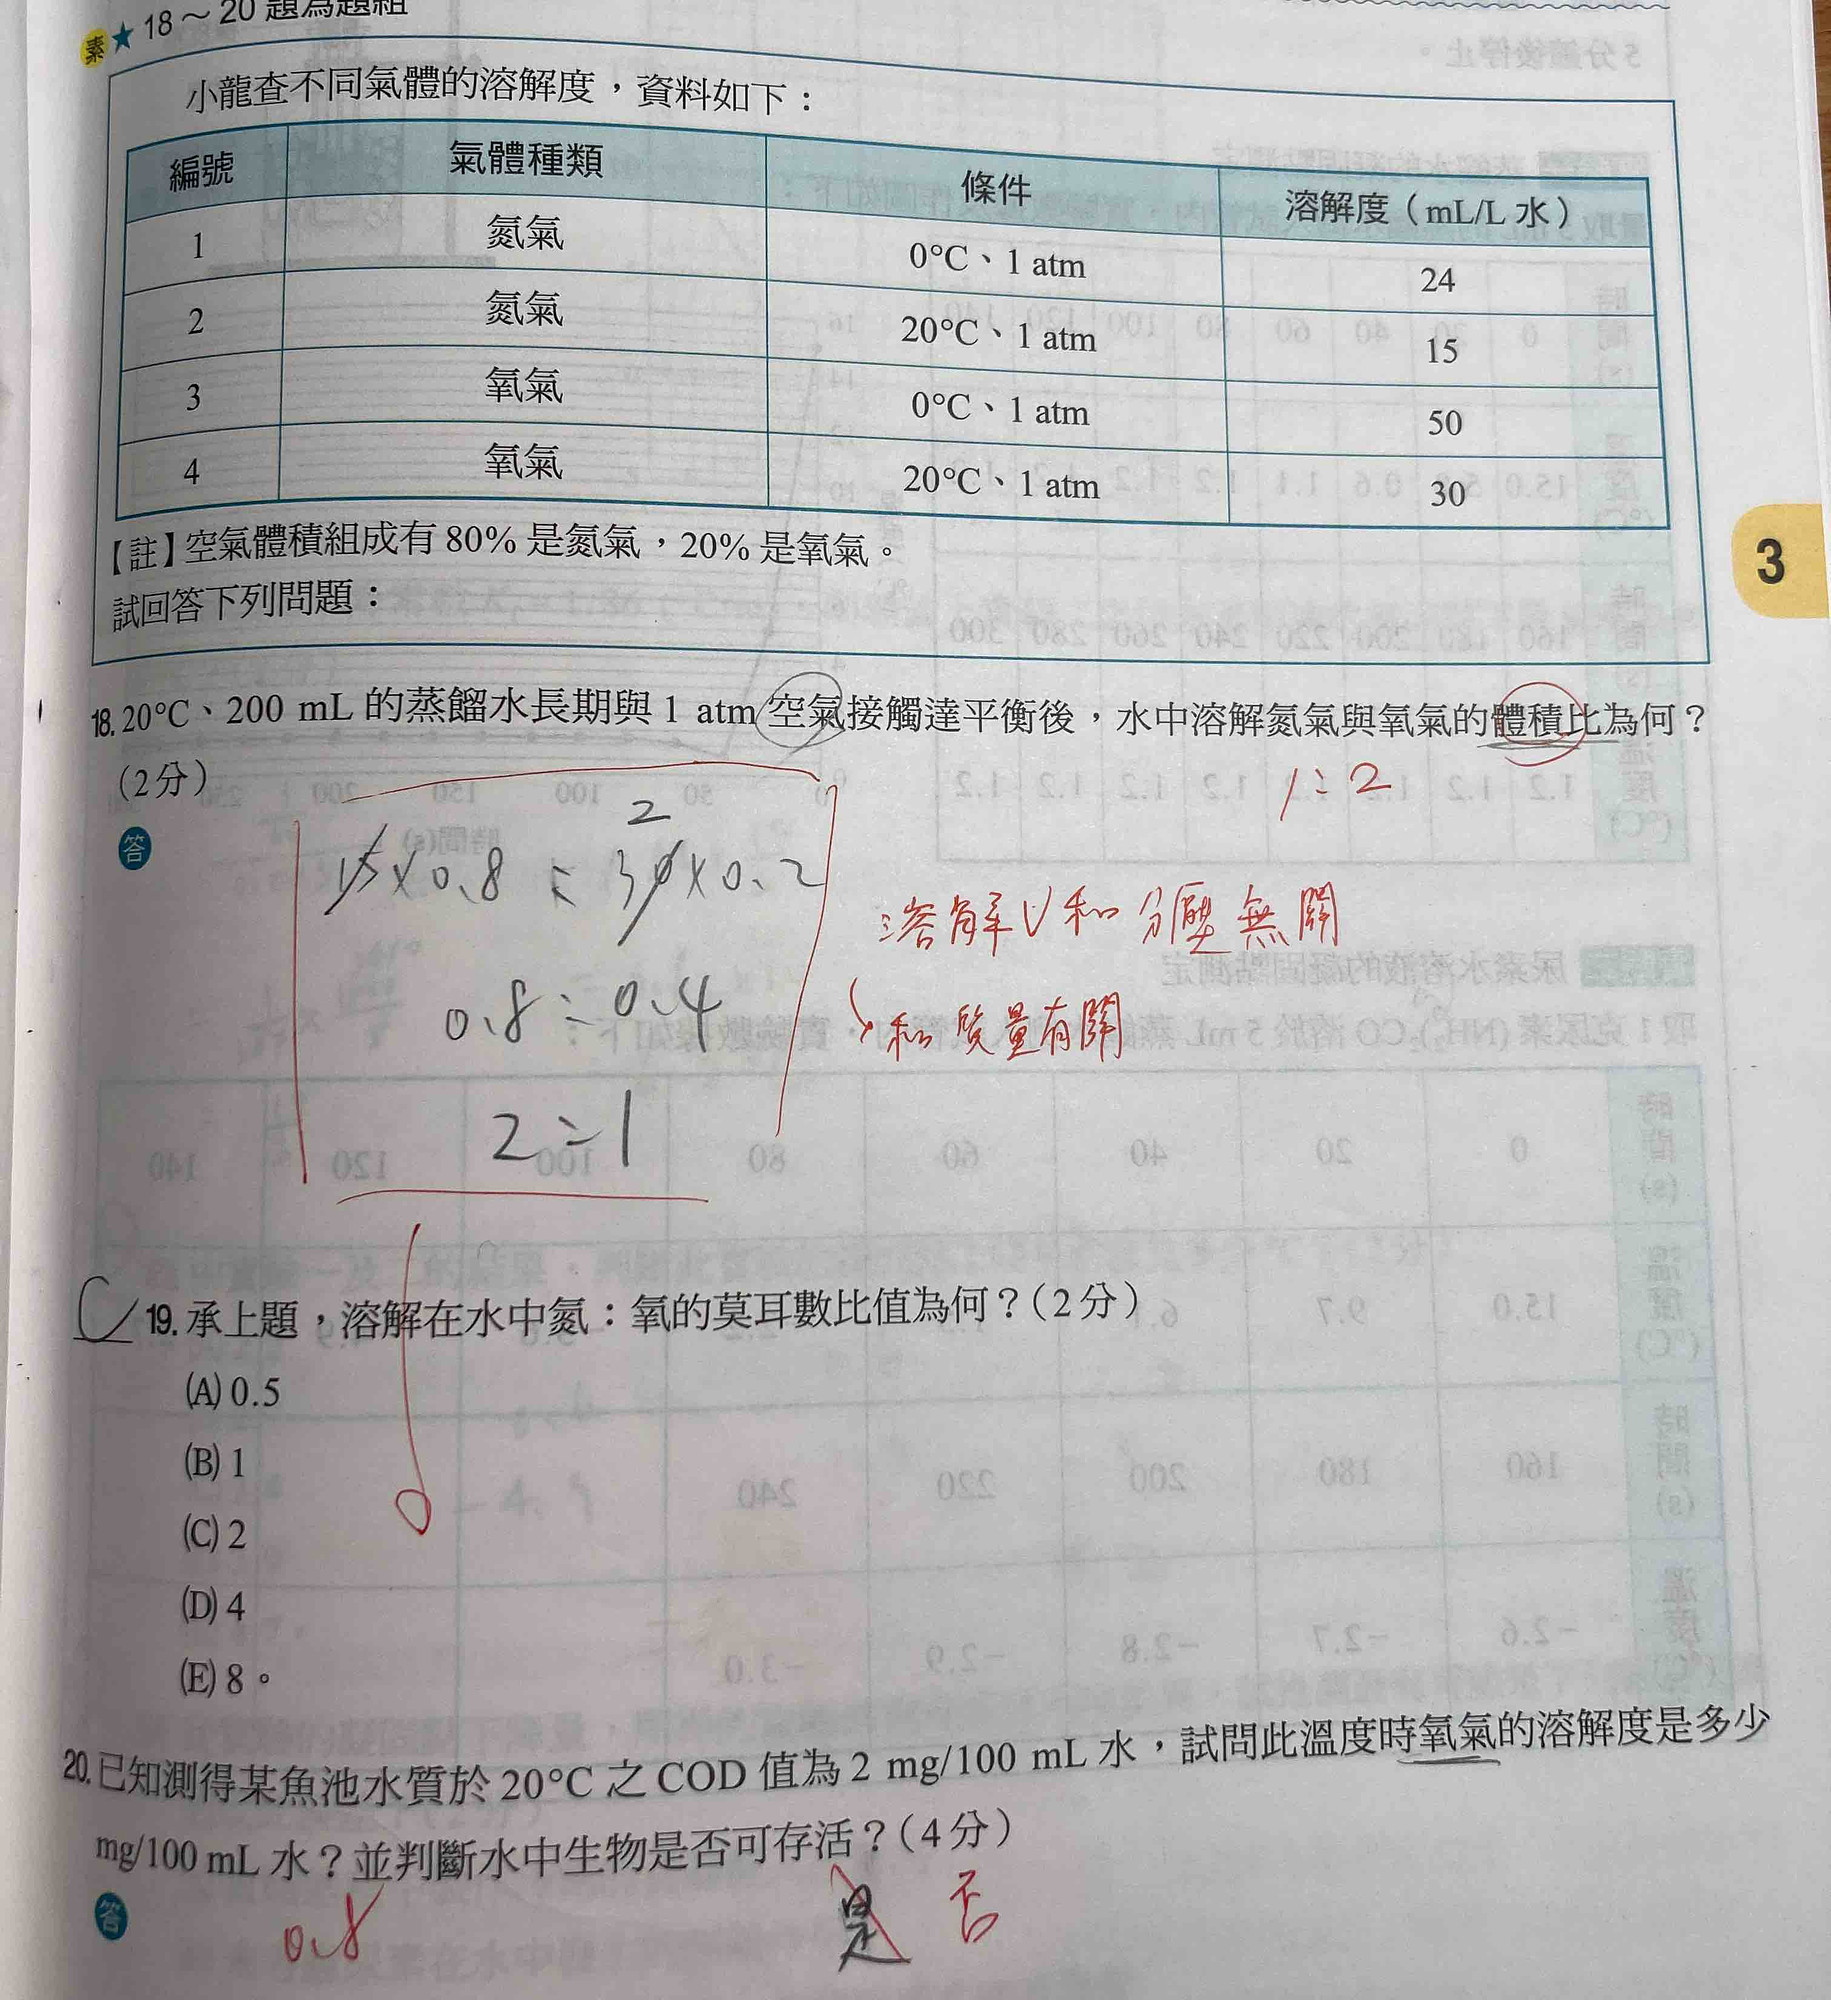 素★18～20 題為題組
小龍查不同氣體的溶解度，資料如下：
編號 氣體種類 條件 溶解度（mL/L 水）
1 氮氣 0°C、1 atm 24
2 氮氣 20°C、1 atm 15
3 氧氣 0°C、1 atm 50
4 氧氣 20°C、1 atm 30
【註】空氣體積組成有 80% 是氮氣，20% 是氧氣。
試回答下列問題：
3
18. 20°C、200 mL 的蒸餾水長期與 1 atm 空氣接觸達平衡後，水中溶解氮氣與氧氣的體積比為何？
（2分）
1:2
答
2
15×0.8 : 30×0.2
溶解V和分壓無關
0.8:0.4
↳和質量有關
2:1
C 19. 承上題，溶解在水中氮：氧的莫耳數比值為何？（2分）
(A) 0.5
(B) 1
(C) 2
(D) 4
(E) 8。
20. 已知測得某魚池水質於 20°C 之 COD 值為 2 mg/100 mL 水，試問此溫度時氧氣的溶解度是多少
mg/100 mL 水？並判斷水中生物是否可存活？（4分）
答
0.8 是 否